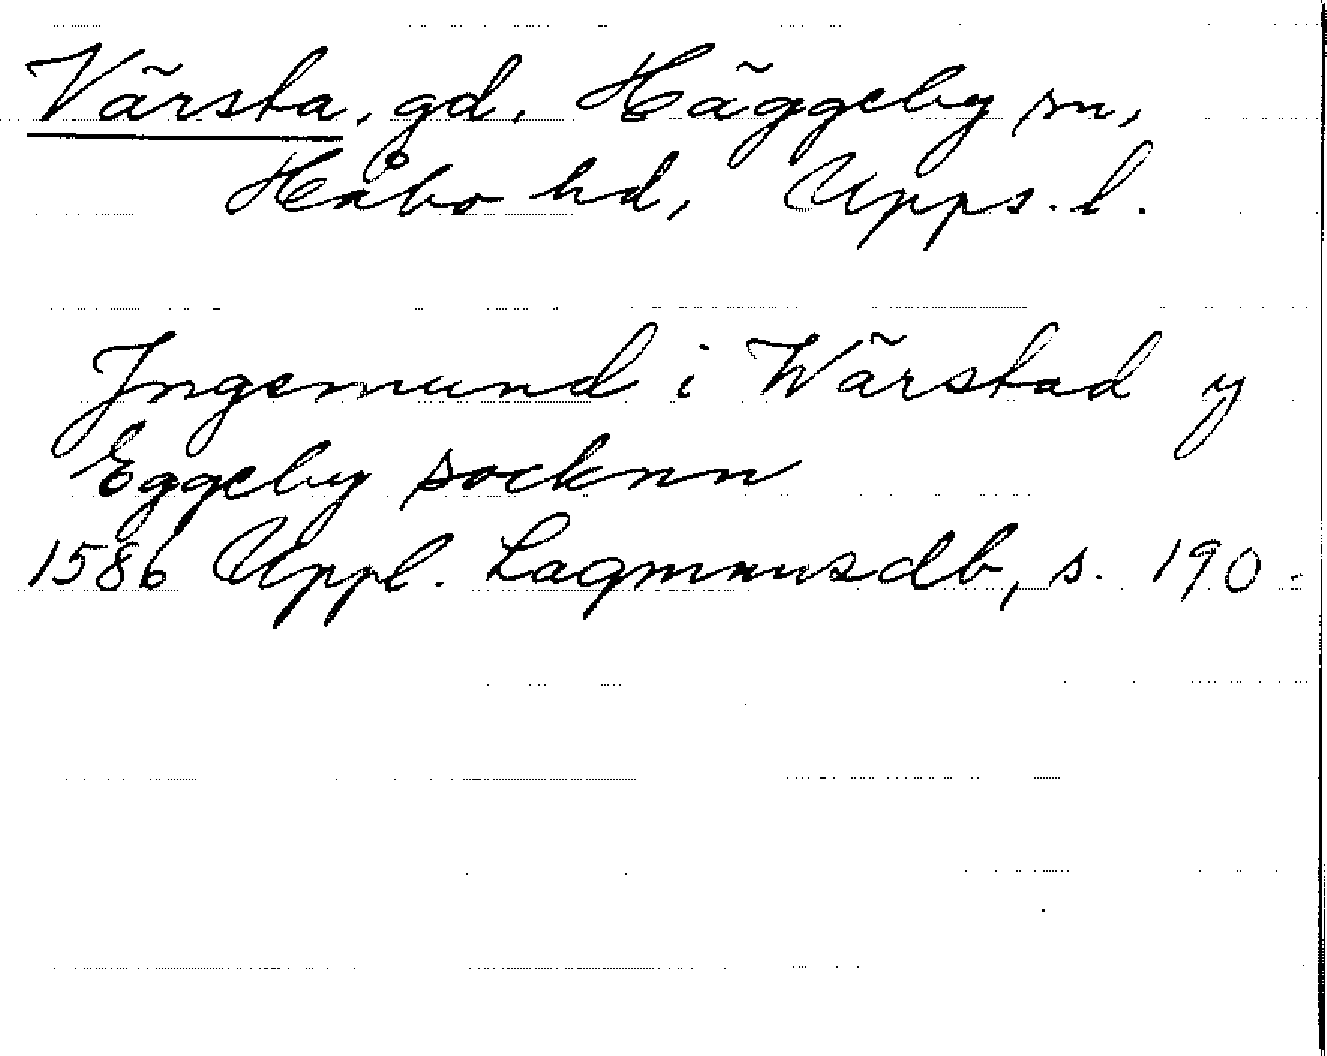 Värsta, gd, Häggeby sn,
Håbo hd, Upps. l.
Jngemund i Wärstad y
Eggeby socknn
1586 Uppl. Lagmansdb, s. 190.